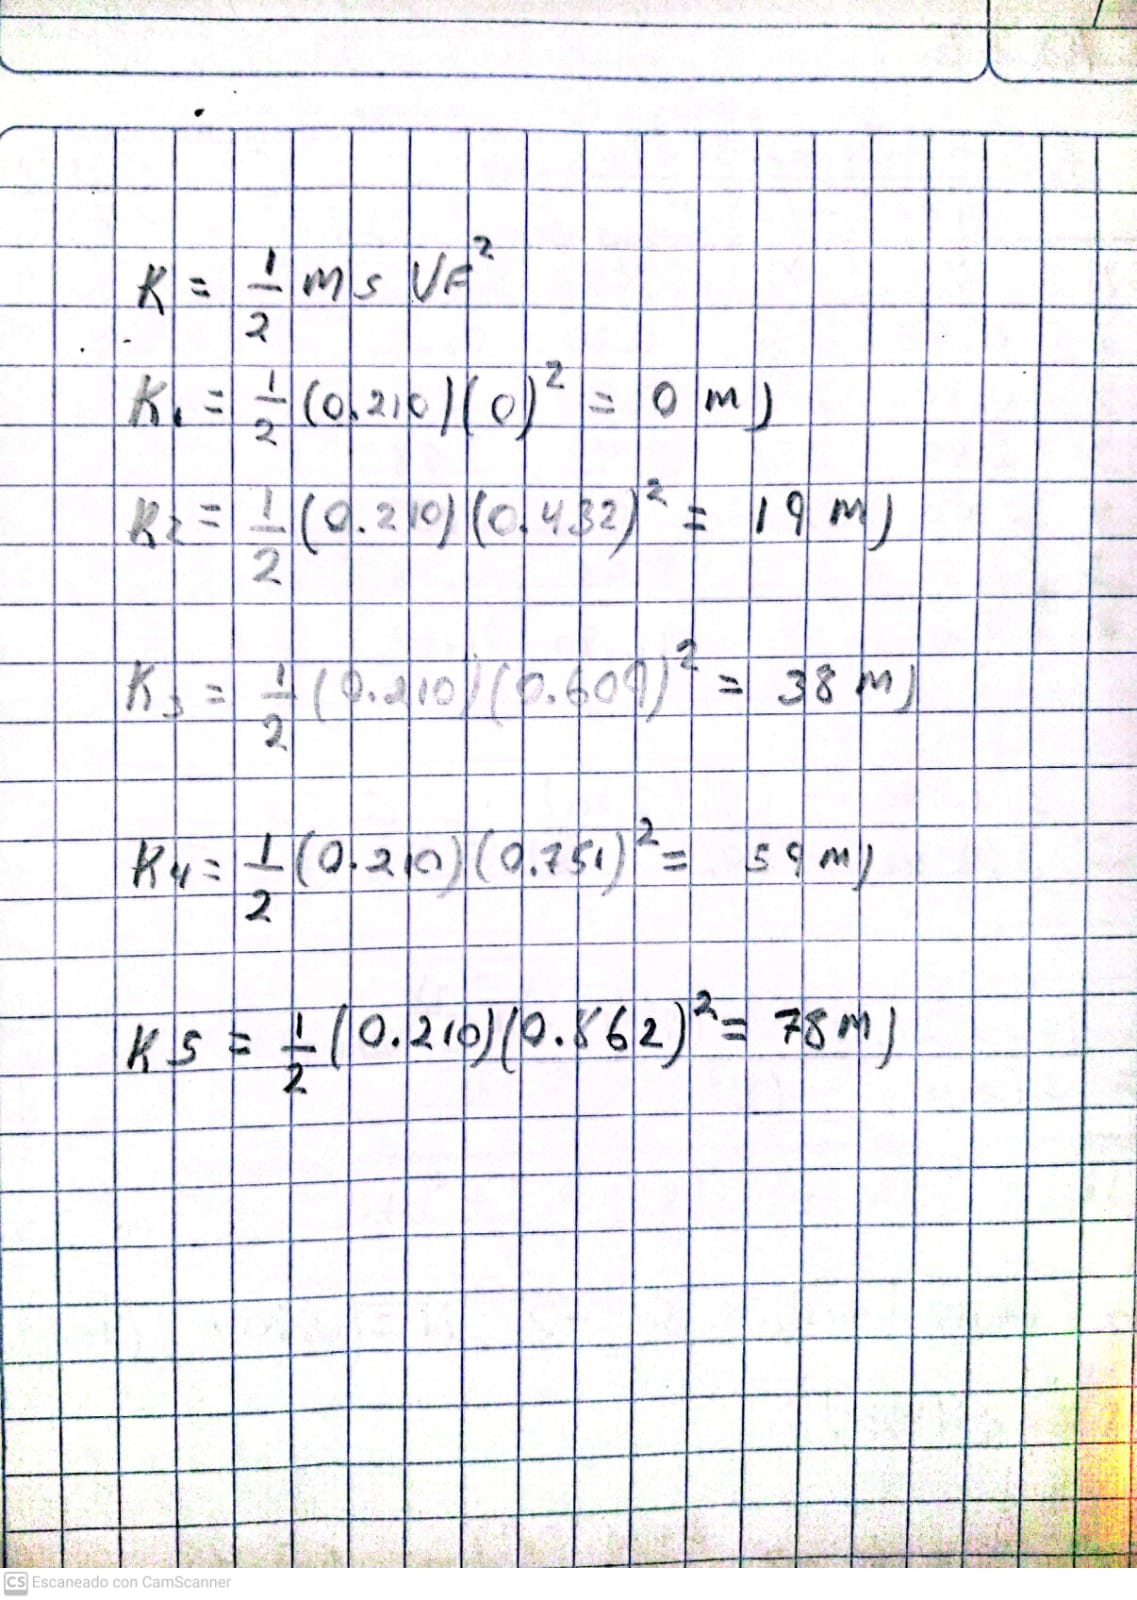 K = 1/2 ms VF²
K1 = 1/2 (0.210)(0)² = 0 mJ
K2 = 1/2 (0.210)(0.432)² = 19 mJ
K3 = 1/2 (0.210)(0.609)² = 38 mJ
K4 = 1/2 (0.210)(0.751)² = 59 mJ
K5 = 1/2 (0.210)(0.862)² = 78 mJ
CS Escaneado con CamScanner